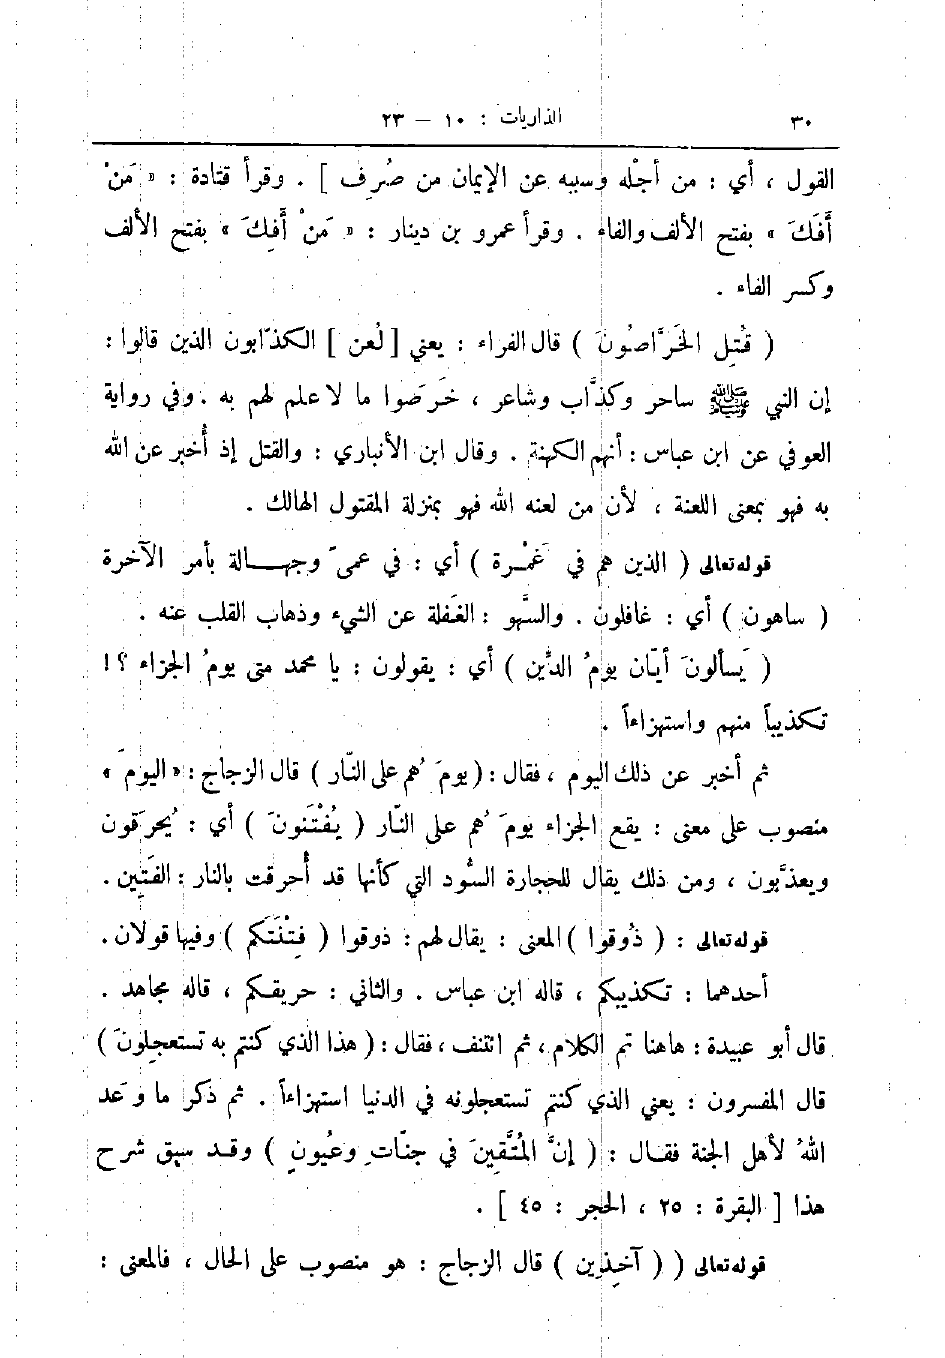 ٣٠ الذاريات : ١٠ – ٢٣
القول ، أي : من أجْله وسببه عن الإيمان من صُرِف ] . وقرأ قتادة : « مَنْ
أَفَكَ » بفتح الألف والفاء . وقرأ عمرو بن دينار : « مَنْ أَفِكَ » بفتح الألف
وكسر الفاء .
( قُتِل الخَرَّاصُونَ ) قال الفراء : يعني [ لُعن ] الكذّابون الذين قالوا :
إن النبي ﷺ ساحر وكذَّاب وشاعر ، خَرَصُوا ما لا علم لهم به . وفي رواية
العوفي عن ابن عباس : أنهم الكهنة . وقال ابن الأنباري : والقتل إذ أُخبر عن الله
به فهو بمعنى اللعنة ، لأن من لعنه الله فهو بمنزلة المقتول الهالك .
قوله تعالى ( الذين هم في غَمْرة ) أي : في عمىً وجهــالة بأمر الآخرة
( ساهون ) أي : غافلون . والسَّهو : الغَفلة عن الشيء وذهاب القلب عنه .
( يَسألونَ أيّان يومُ الدِّين ) أي : يقولون : يا محمد متى يومُ الجزاء ؟ !
تكذيباً منهم واستهزاءاً .
ثم أخبر عن ذلك اليوم ، فقال : ( يومَ هُم على النّار ) قال الزجاج : « اليومَ »
منصوب على معنى : يقع الجزاء يومَ هُم على النّار ( يُفْتَنونَ ) أي : يُحرَقون
ويعذَّبون ، ومن ذلك يقال للحجارة السُّود التي كأنها قد أُحرقت بالنار : الفَتِين .
قوله تعالى : ( ذُوقوا ) المعنى : يقال لهم : ذوقوا ( فِتْنَتَكم ) وفيها قولان .
أحدهما : تكذيبكم ، قاله ابن عباس . والثاني : حريقكم ، قاله مجاهد .
قال أبو عبيدة : هاهنا تم الكلام ، ثم ائتنف ، فقال : ( هذا الذي كنتم به تستعجِلونَ )
قال المفسرون : يعني الذي كنتم تستعجلونه في الدنيا استهزاءاً . ثم ذكر ما وعَد
اللهُ لأهل الجنة فقال : ( إنَّ المُتَّقِينَ في جنّاتٍ وعُيونٍ ) وقد سبق شرح
هذا [ البقرة : ٢٥ ، الحجر : ٤٥ ] .
قوله تعالى ( ( آخِذِين ) قال الزجاج : هو منصوب على الحال ، فالمعنى :